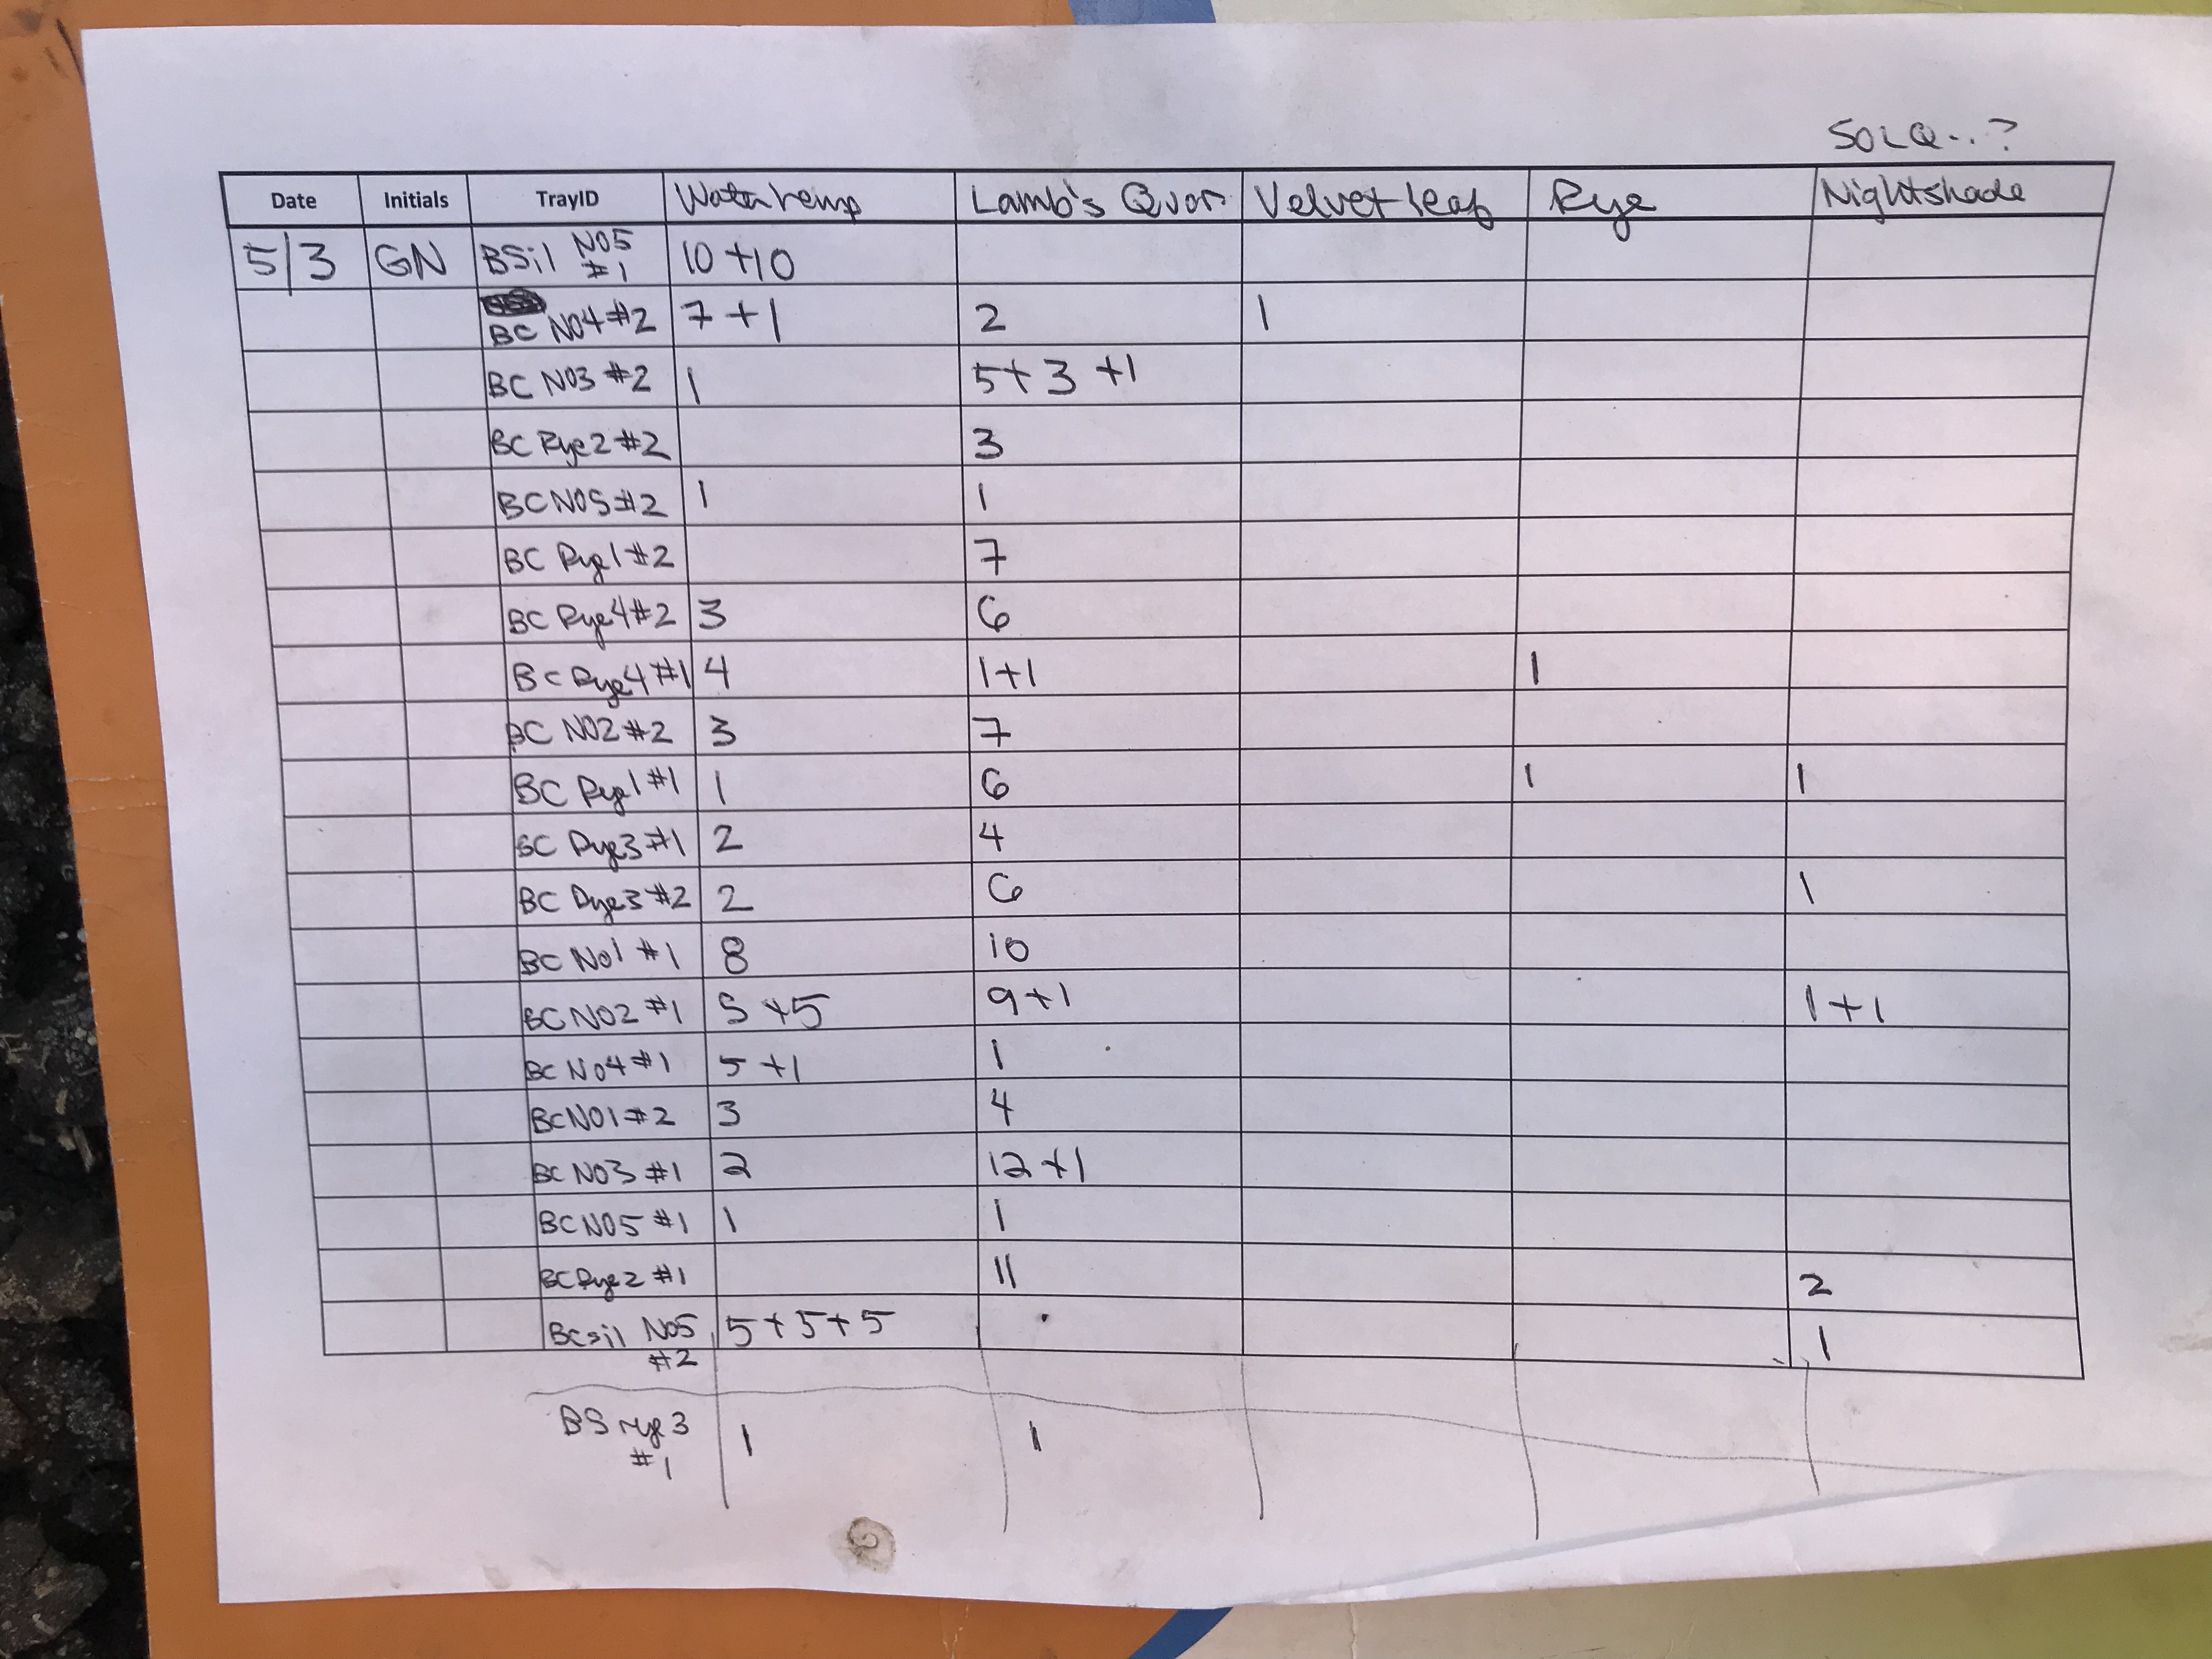 SOLQ..?
Date Initials TrayID Waterhemp Lamb's Quar. Velvetleaf Rye Nightshade
5/3 GN BSil NO5 #1 10+10
BC NO4 #2 7+1 2 1
BC NO3 #2 1 5+3+1
BC Rye2 #2 3
BC NO5 #2 1 1
BC Rye1 #2 7
BC Rye4 #2 3 6
BC Rye4 #1 4 1+1 1
BC NO2 #2 3 7
BC Rye1 #1 1 6 1 1
BC Rye3 #1 2 4
BC Rye3 #2 2 6 1
BC NO1 #1 8 10
BC NO2 #1 5+5 9+1 1+1
BC NO4 #1 5+1 1
BC NO1 #2 3 4
BC NO3 #1 2 12+1
BC NO5 #1 1 1
BC Rye2 #1 11 2
BCsil NO5 #2 5+5+5 1
BS rye3 #1 1 1